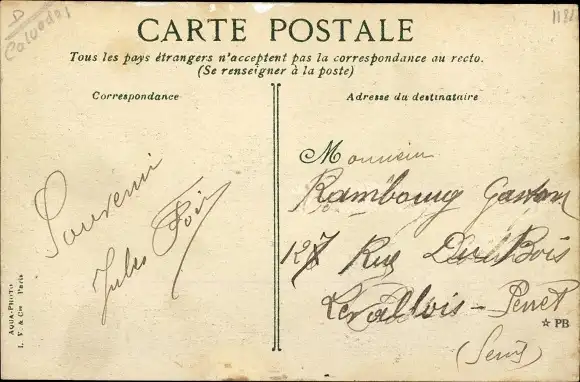 D
Calvados
1182
CARTE POSTALE
Tous les pays étrangers n'acceptent pas la correspondance au recto.
(Se renseigner à la poste)
Correspondance
Adresse du destinataire
Souvenir
Jules
Monsieur
Rambourg Gaston
127 Rue Du Bois
Levallois - Perret
(Seine)
☆ PB
AQUA-PHOTO
L. V. & Cie Paris